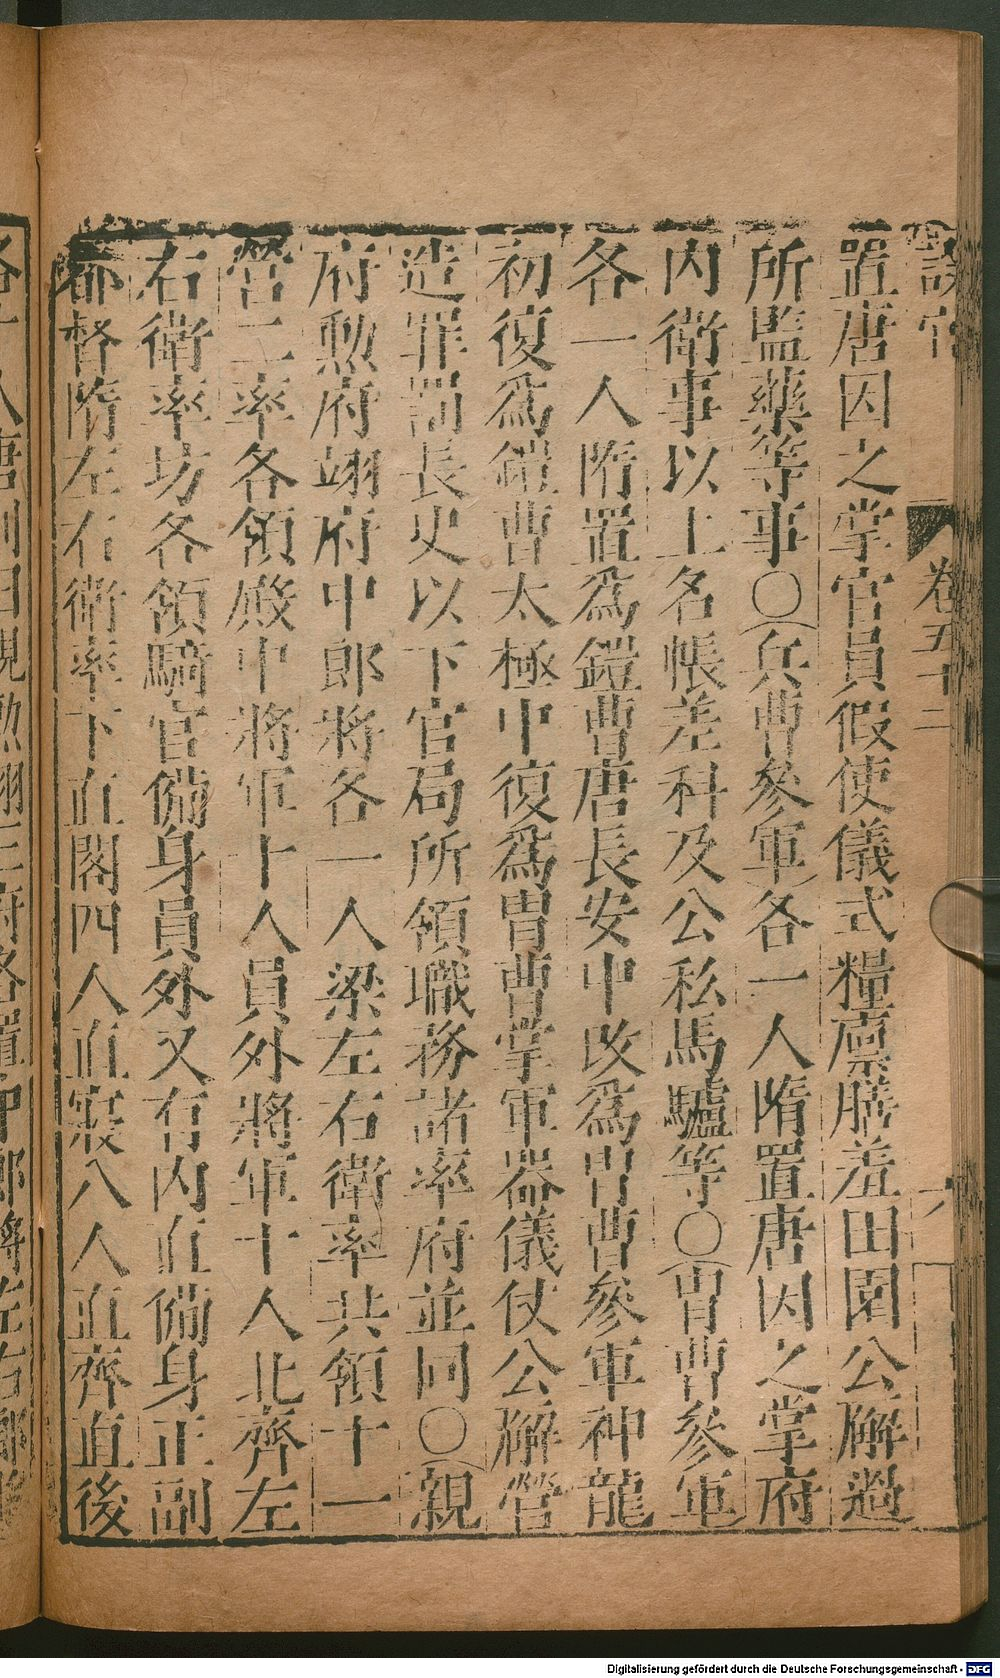 卷五十二
置唐因之掌官員假使儀式糧廩膳羞田園公廨過
所監藥等事○兵曹參軍各一人隋置唐因之掌府
內衛事以上名帳差科及公私馬驢等○冑曹參軍
各一人隋置爲鎧曹唐長安中改爲冑曹參軍神龍
初復爲鎧曹太極中復爲冑曹掌軍器儀仗公廨營
造罪罰長史以下官局所領職務諸率府並同○親
府勲府翊府中郎將各一人梁左右衛率共領十一
營二率各領殿中將軍十人員外將軍十人北齊左
右衛率坊各領騎官備身員外又有內直備身正副
都督隋左右衛率下直閣四人直寢八人直齊直後
Digitalisierung gefördert durch die Deutsche Forschungsgemeinschaft - DFG